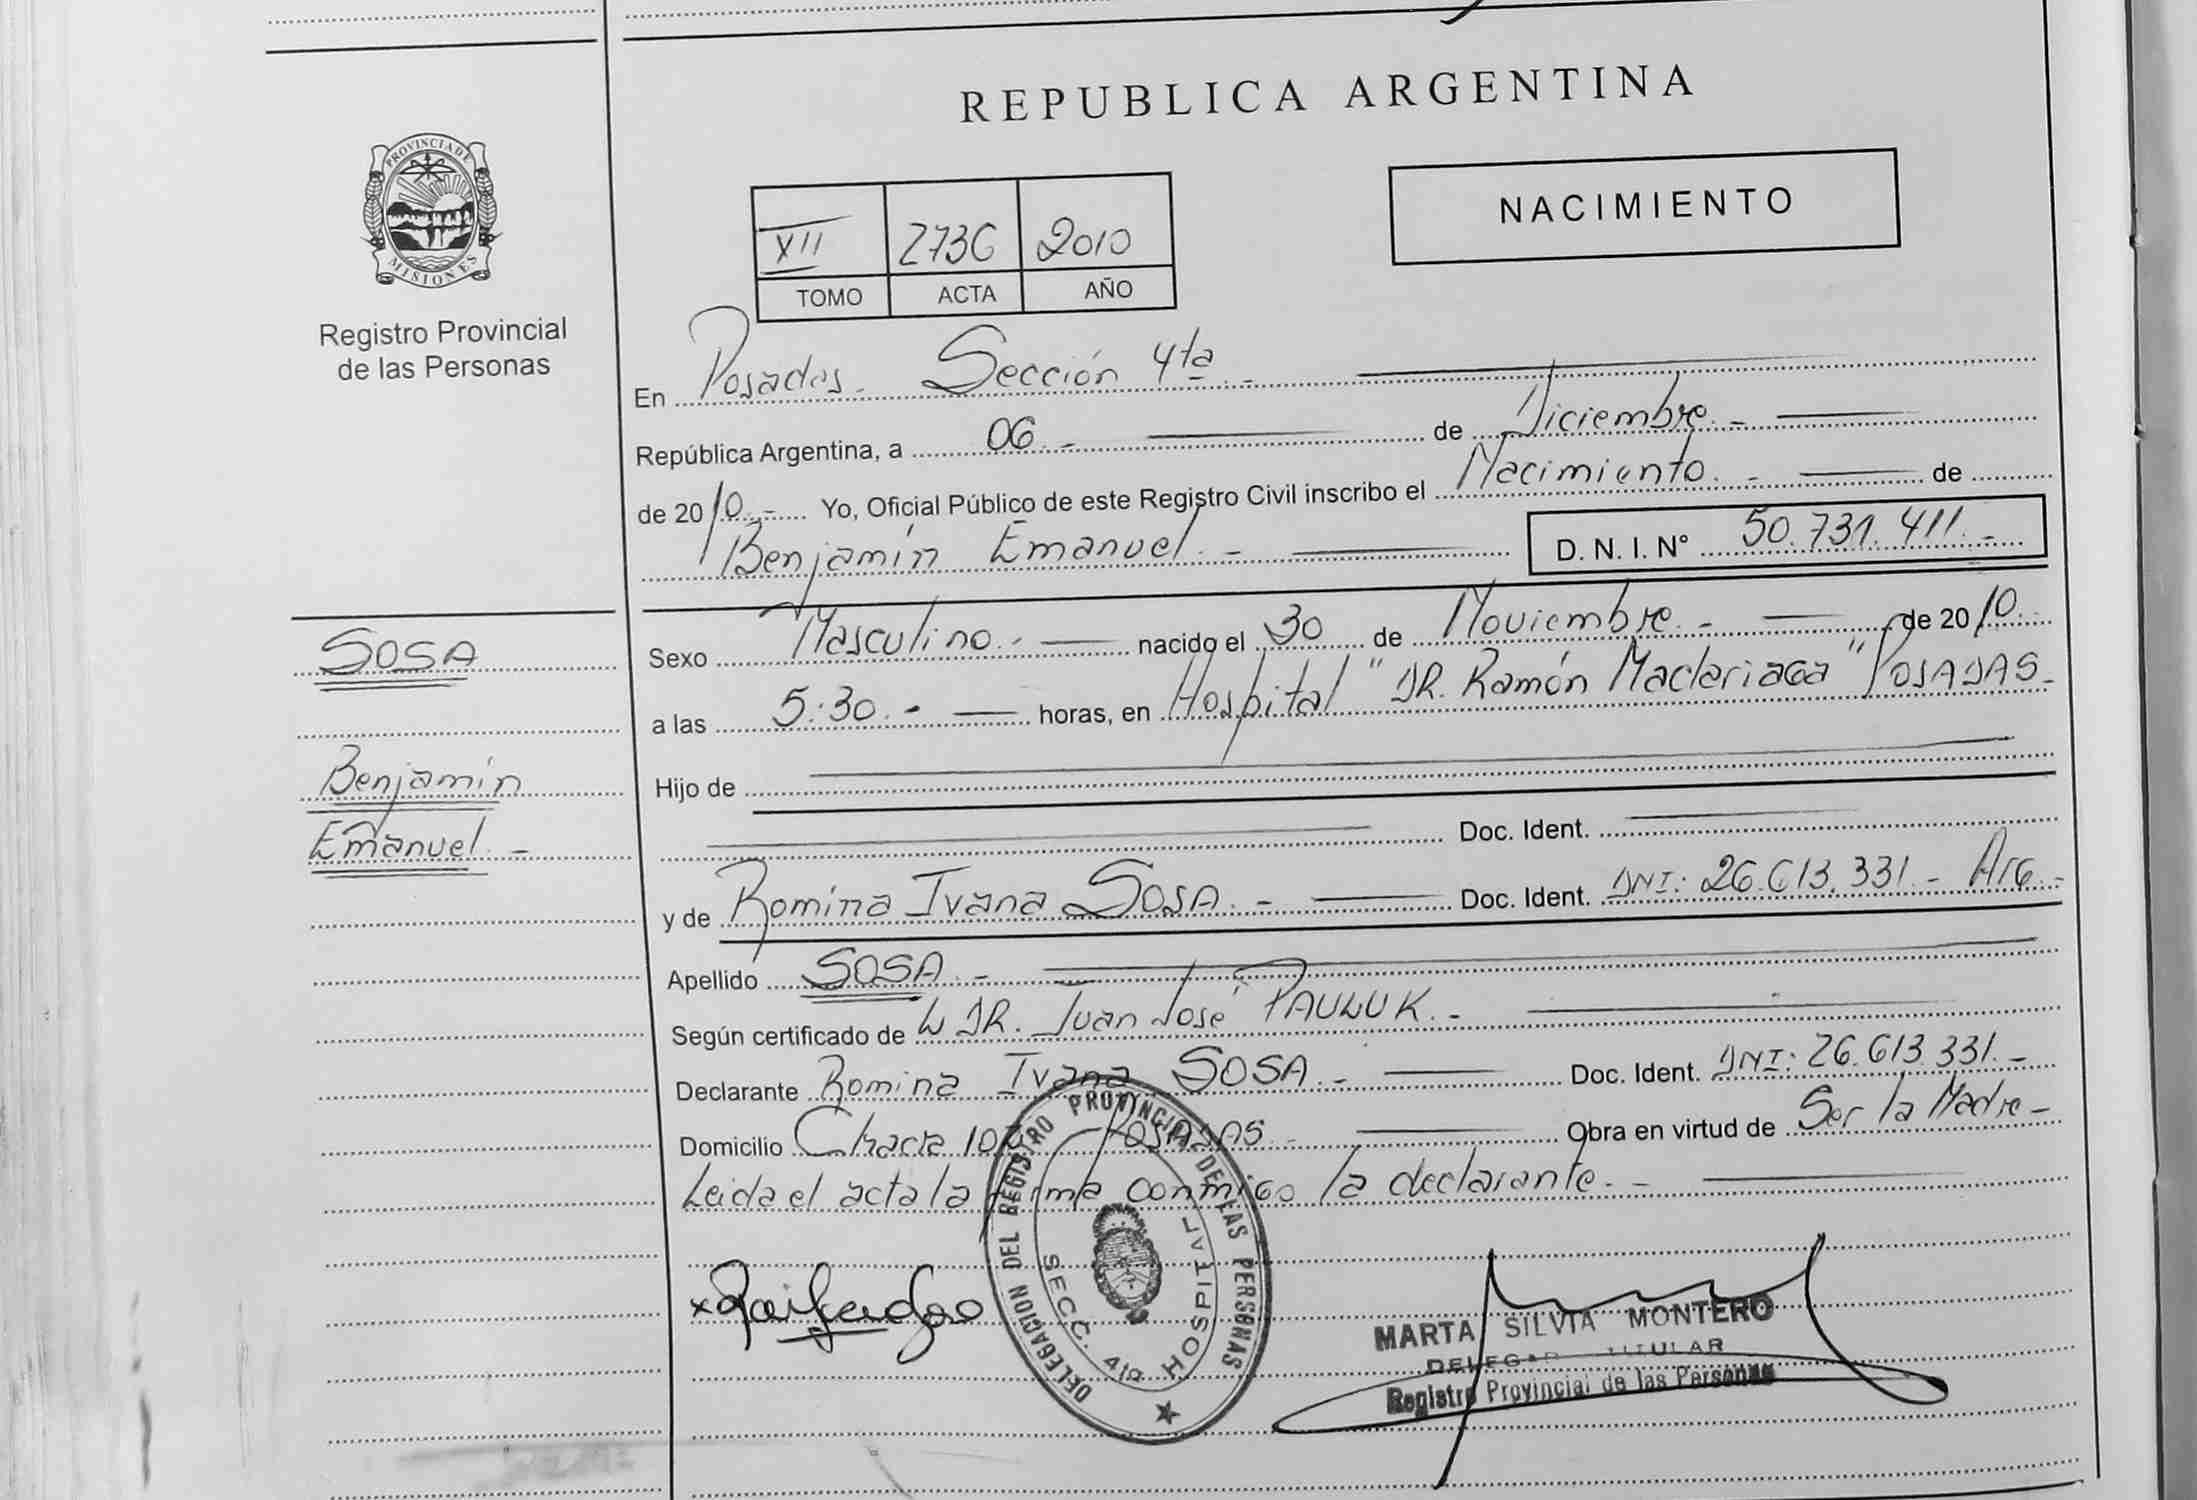 REPUBLICA ARGENTINA
PROVINCIA DE MISIONES
Registro Provincial
de las Personas
NACIMIENTO
XII 2736 2010
TOMO ACTA AÑO
En Posadas. Sección 4ta.-
República Argentina, a 06.- de Diciembre.-
de 2010.- Yo, Oficial Público de este Registro Civil inscribo el Nacimiento.- de
Benjamín Emanuel.- D. N. I. N° 50.731.411.-
SOSA
Benjamín
Emanuel.-
Sexo Masculino.- nacido el 30 de Noviembre.- de 2010.-
a las 5:30.- horas, en Hospital "DR. Ramón Madariaga" POSADAS-
Hijo de
Doc. Ident.
y de Romina Ivana SOSA.- Doc. Ident. DNI: 26.613.331.- Arg.-
Apellido SOSA.-
Según certificado de DR. Juan José PAULUK.-
Declarante Romina Ivana SOSA.- Doc. Ident. DNI: 26.613.331.-
Domicilio Chacra POSADAS.- Obra en virtud de Ser la Madre-
Leida el acta la firma conmigo la declarante.-
DELEGACION DEL REGISTRO PROVINCIAL DE LAS PERSONAS
SECC. 4ta HOSPITAL
MARTA SILVIA MONTERO
TITULAR
Registro Provincial de las Personas